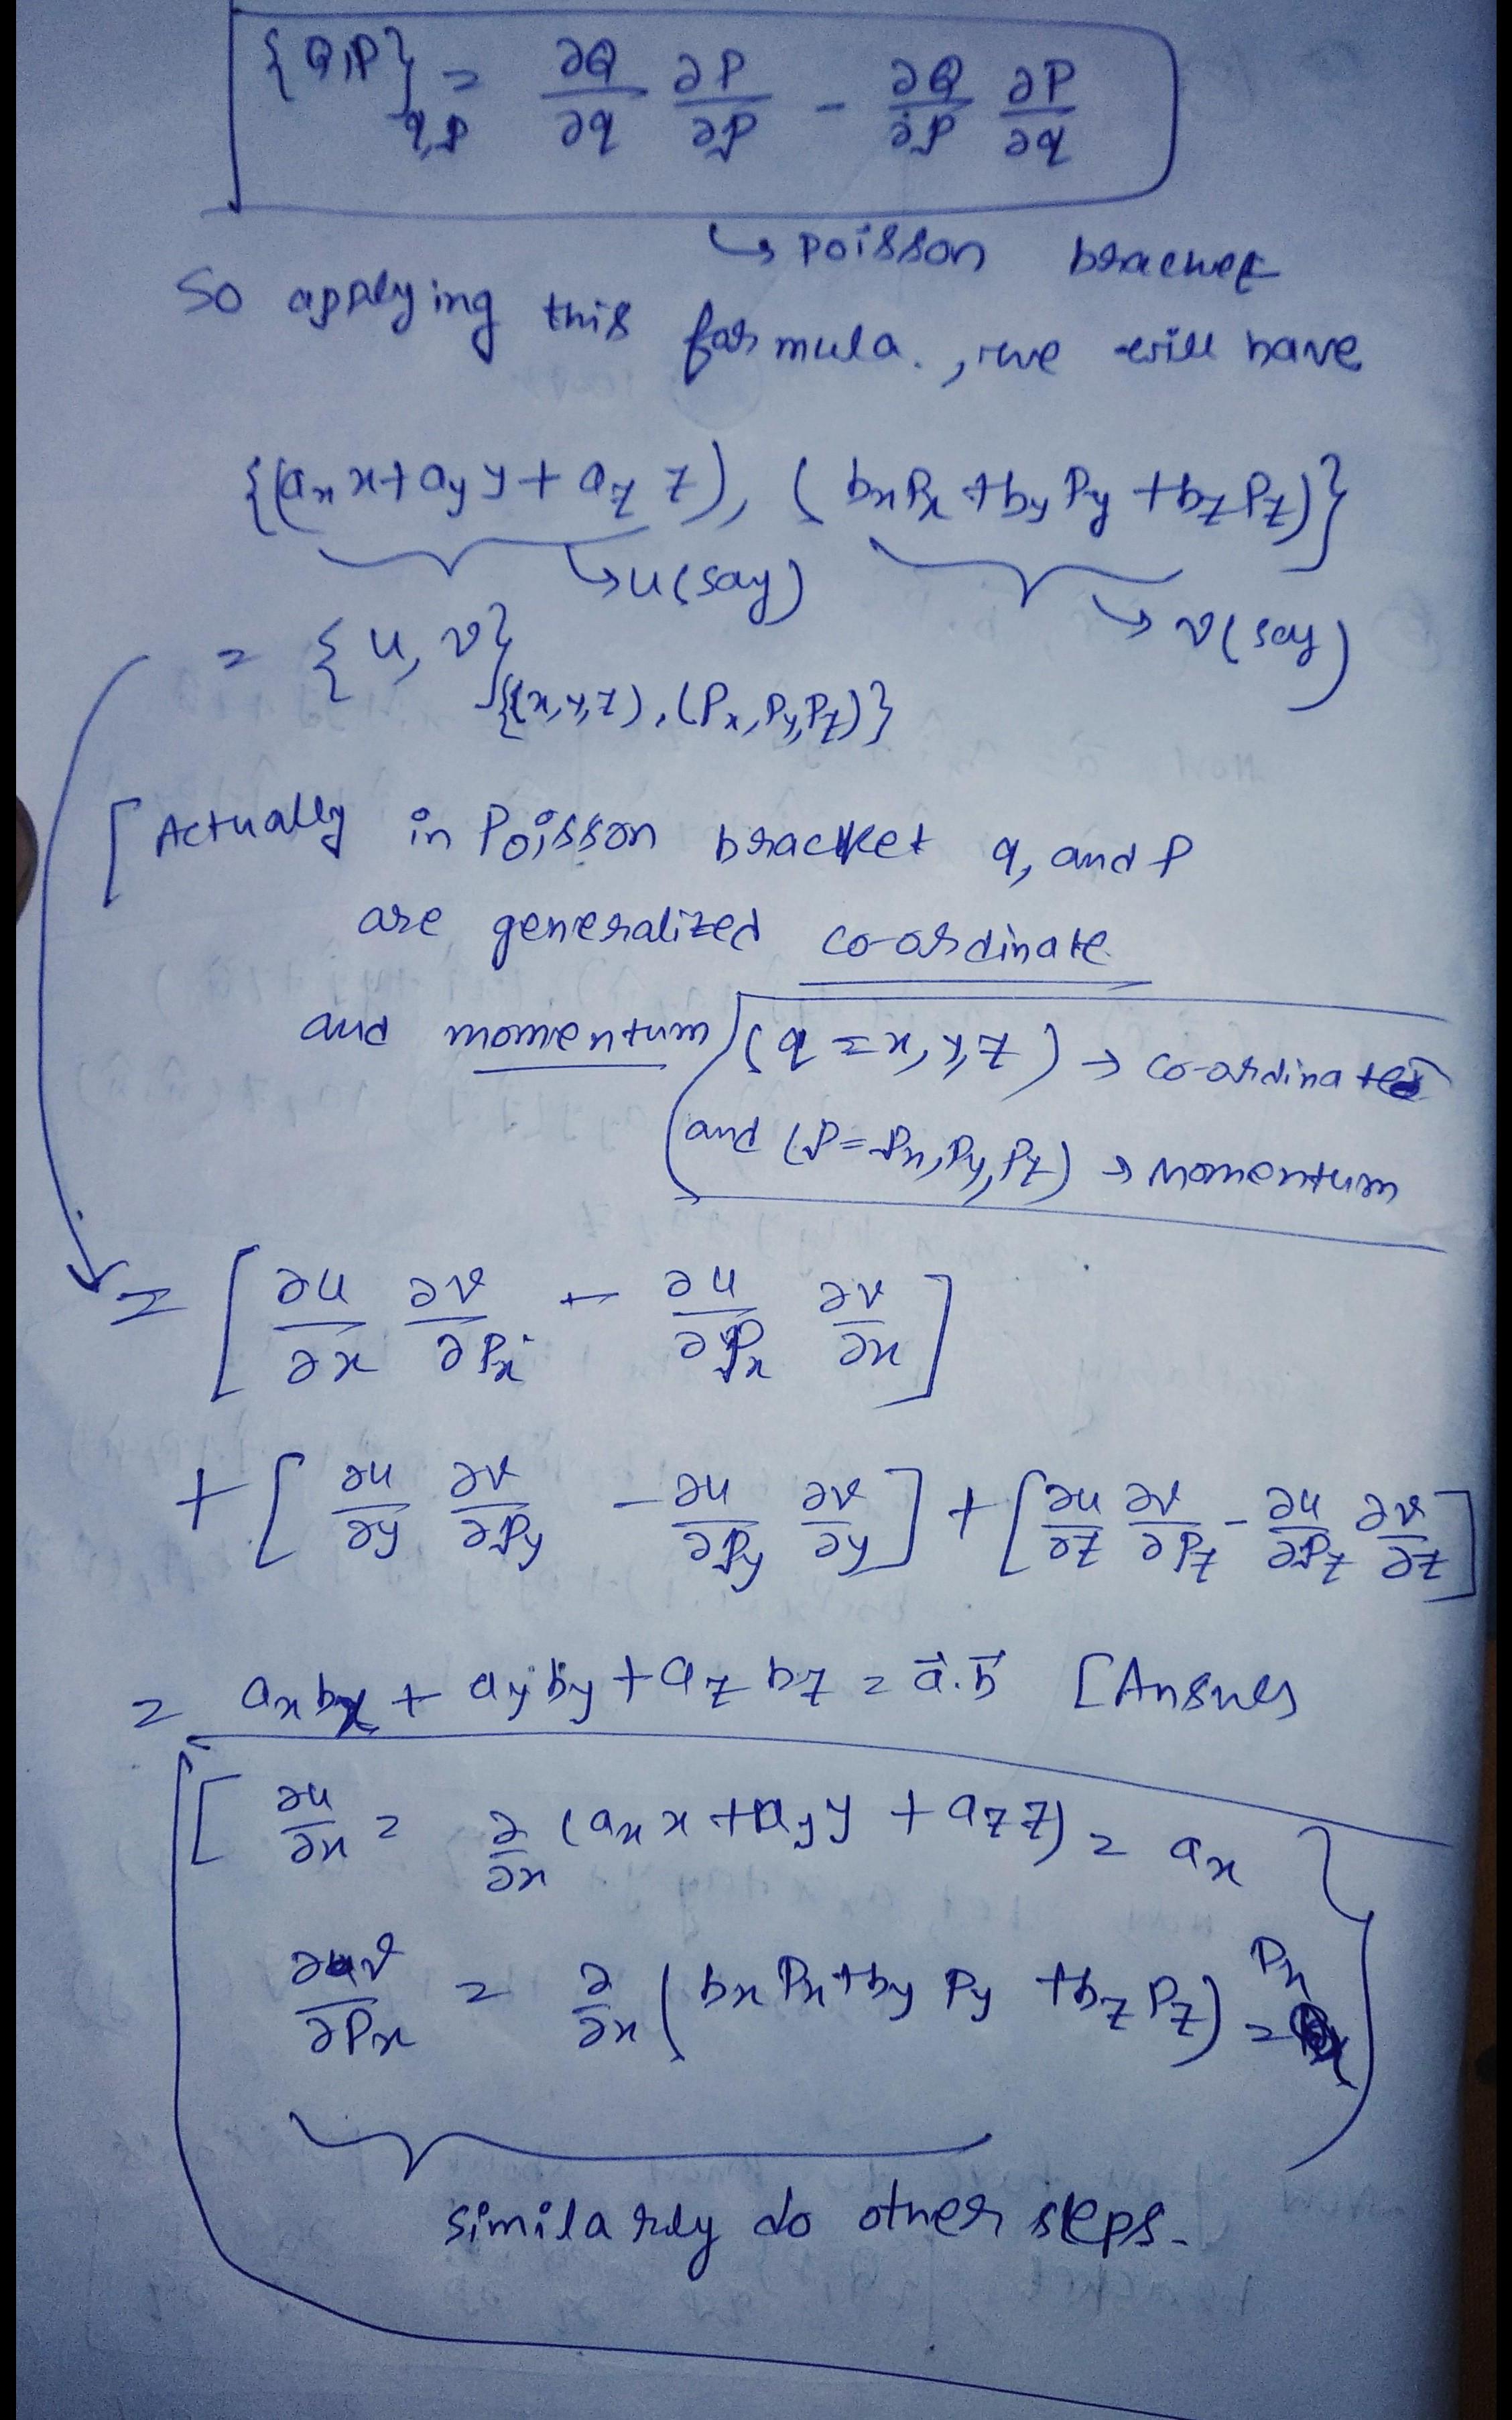 {Q,P}q,p = ∂Q/∂q ∂P/∂p - ∂Q/∂p ∂P/∂q
↳ poisson bracket
So applying this formula., we will have
{(axx+ayy+azz), (bxPx+byPy+bzPz)}
↳u(say)
↳v(say)
= {u, v}{(x,y,z),(Px,Py,Pz)}
[Actually in Poisson bracket q, and P
are generalized co-ordinate
and momentum (q = x,y,z) → co-ordinates
and (P=Px,Py,Pz) → Momentum
= [∂u/∂x ∂v/∂Px - ∂u/∂Px ∂v/∂x]
+ [∂u/∂y ∂v/∂Py - ∂u/∂Py ∂v/∂y] + [∂u/∂z ∂v/∂Pz - ∂u/∂Pz ∂v/∂z]
= axbx + ayby + azbz = a⃗.b⃗ [Answer
[∂u/∂x = ∂/∂x (axx+ayy+azz) = ax
∂v/∂Px = ∂/∂x (bxPx+byPy+bzPz) = Px
similarly do other steps.